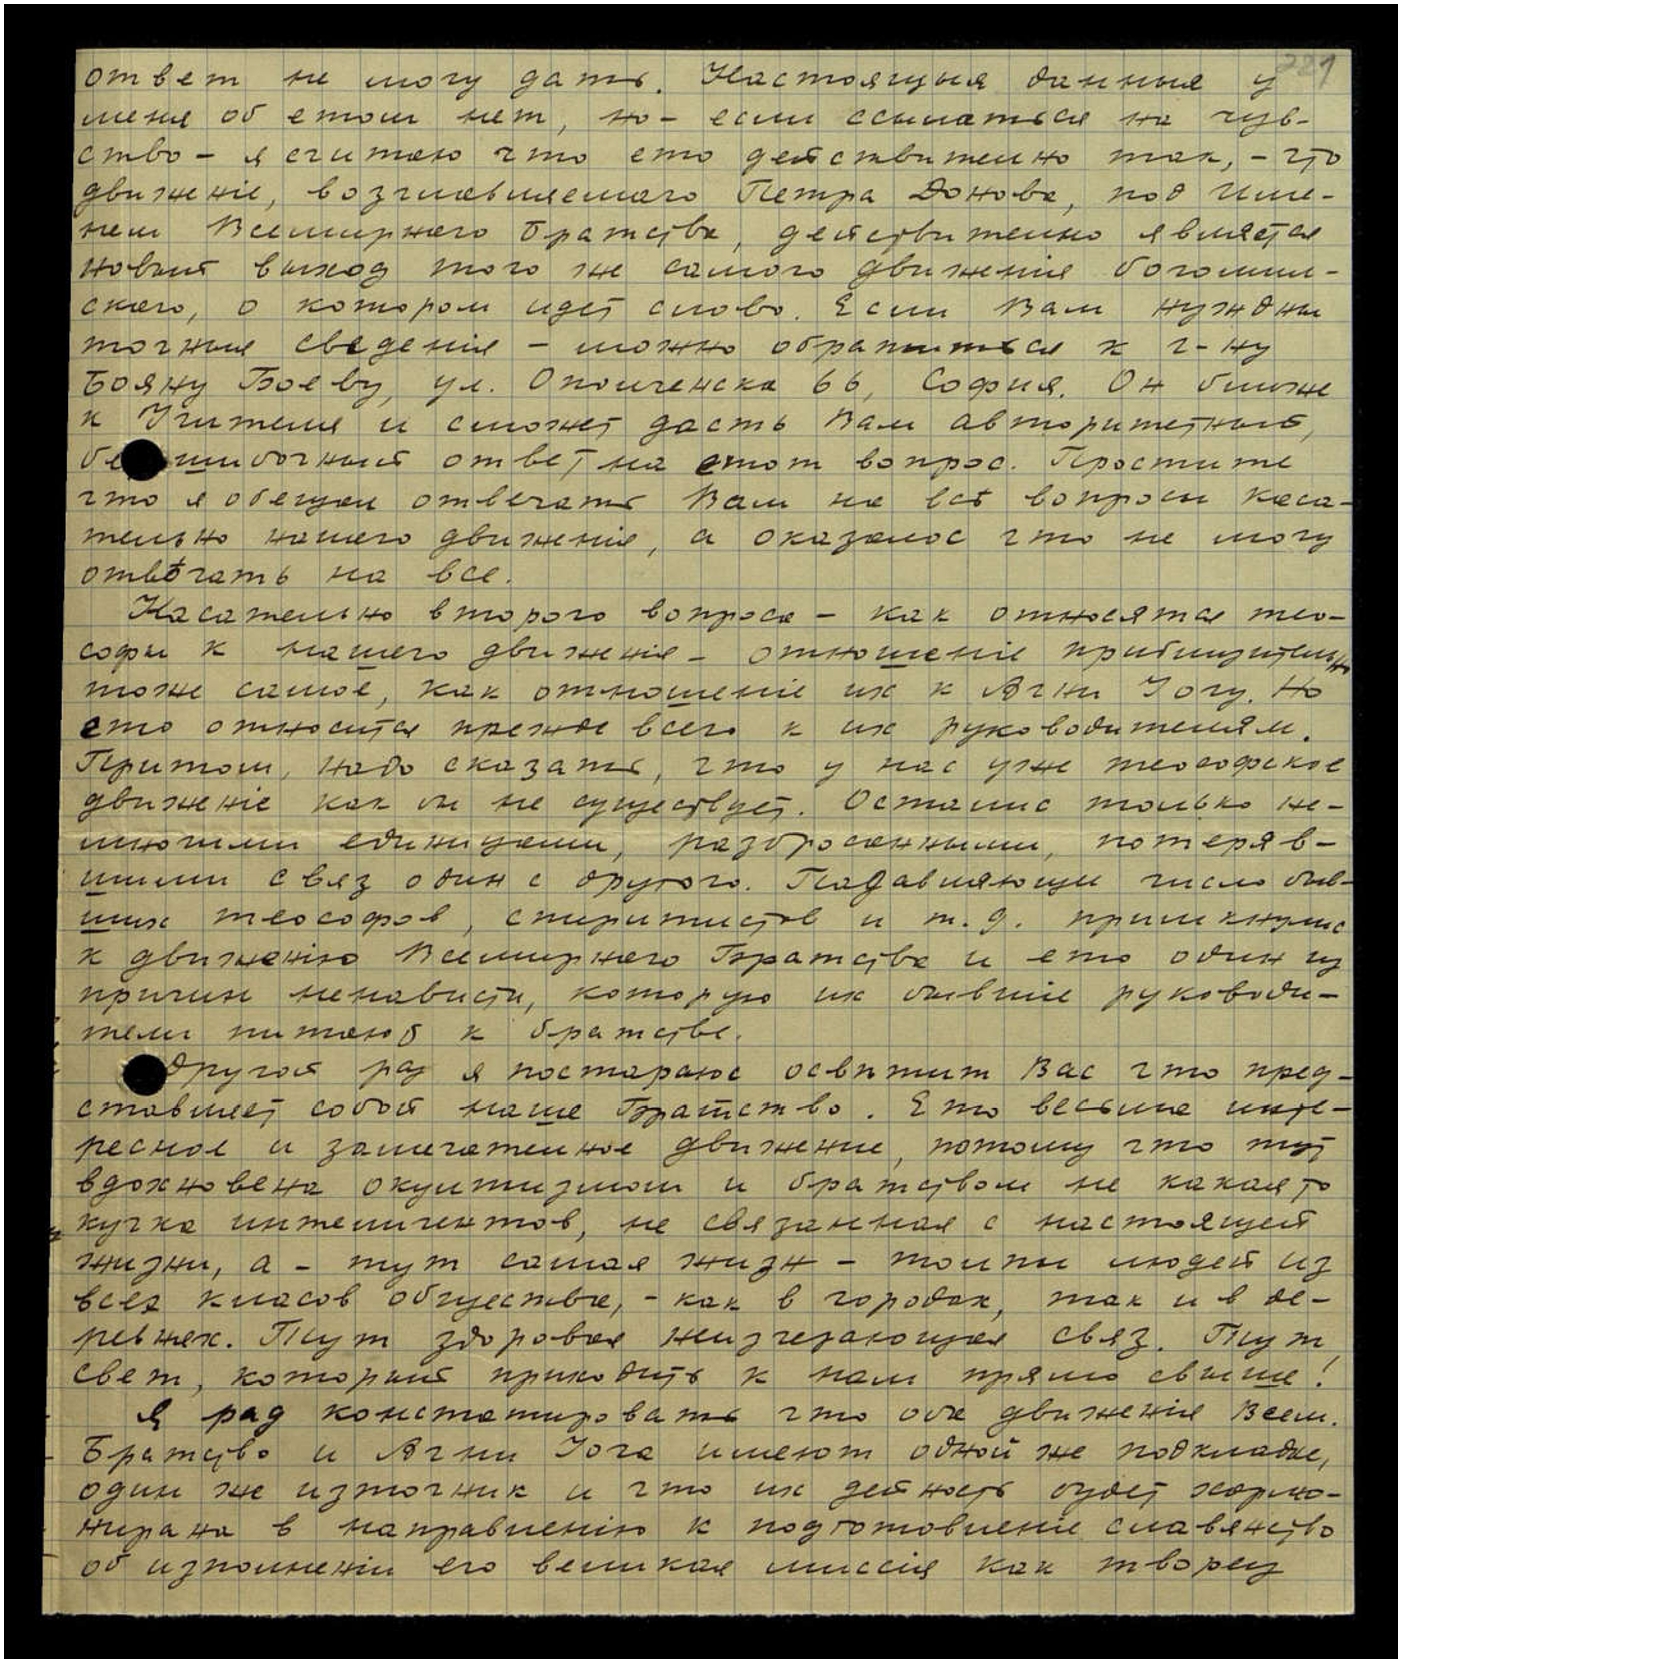 ответ не могу дать. Настоящыя данныя у 221
меня об етом нет, но – если ссылаться на чув-
ство – я считаю что ето действително так, – что
движеніе, возглавляемаго Петра Донова, под Име-
нем Всемирнаго Братства, действително является
новый выход того же самого движенія богомил-
скаго, о котором идет слово. Если Вам нуждны
точныя сведенія – можно обратиться к г-ну
Бояну Боеву, ул. Ополченска 66, София. Он ближе
к Учителя и сможет дасть Вам авторитетный,
бе шибочный ответ на етот вопрос. Простите
что я обещал отвечать Вам на всѣ вопросы каса-
тельно нашего движенія, а оказалос что не могу
отвѣчать на все.
Касательно второго вопроса – как относятся тео-
софы к нашего движенія – отношеніе приблизительно
тоже самое, как отношеніе их к Агни Йогу. Но
ето относится прежде всего к их руководителям.
Притом, надо сказать, что у нас уже теософское
движеніе как бы не существует. Осталис только не-
многими единицами, разбросанными, потеряв-
шими связ один с другого. Подавляющи число быв-
ших теософов, спиритистов и т. д. примкнулис
к движенію Всемирнаго Братства и ето один из
причин ненависти, которую их бывшіе руководи-
тели питают к братстве.
Другой раз я постараюс осветит Вас что пред-
ставляет собой наше Братство. Ето весьма инте-
ресное и замечателное движение, потому что тут
вдохновена окултизмом и братством не какая то
кучка интелигентов, не связанная с настоящей
жизни, а – тут самая жизн – толпы людей из
всех класов общества, – как в городах, так и в де-
ревнях. Тут здоровая жизнерающая связ. Тут
свет, который приходить к нам прямо свыше!
Я рад констатировать что оба движенія Всем.
Братство и Агни Йога имеют одной же подкладке,
один же източник и что их дейность будет хармо-
нирана в направленію к подготовление славянство
об изполненіи его великая миссія как творец